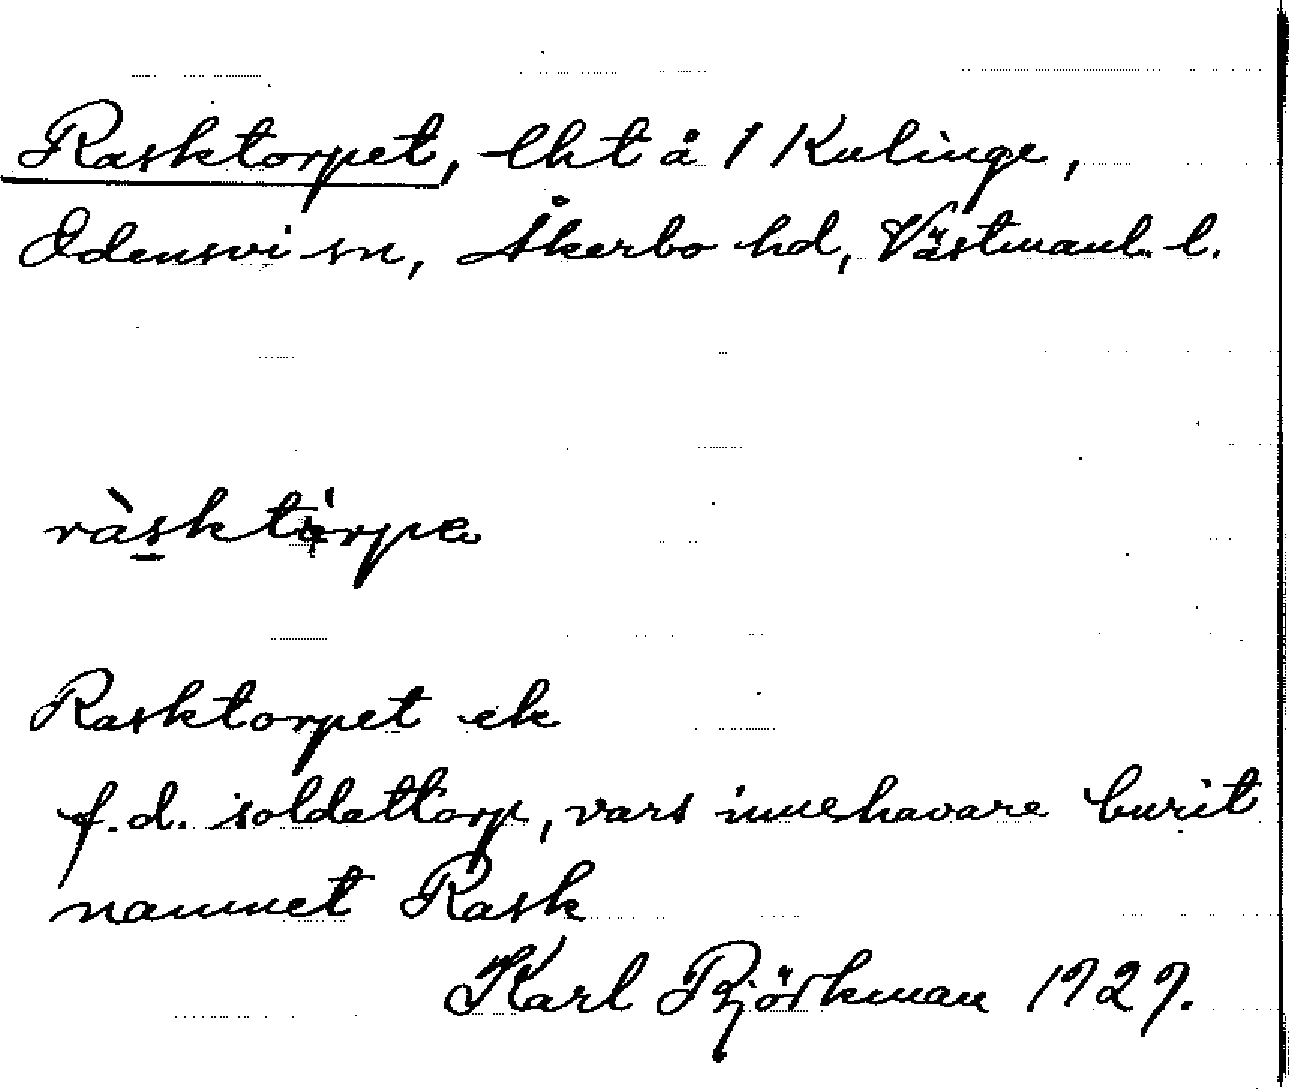 Rasktorpet, lht å 1 Kulinge,
Odensvi sn, Åkerbo hd, Västmanl. l.
ràsktórpe
Rasktorpet ek
f.d. soldattorp, vars innehavare burit
namnet Rask
Karl Björkman 1929.